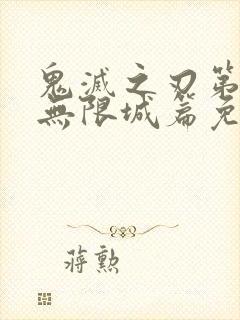 鬼滅之刃第
無限城篇免
蔣勲